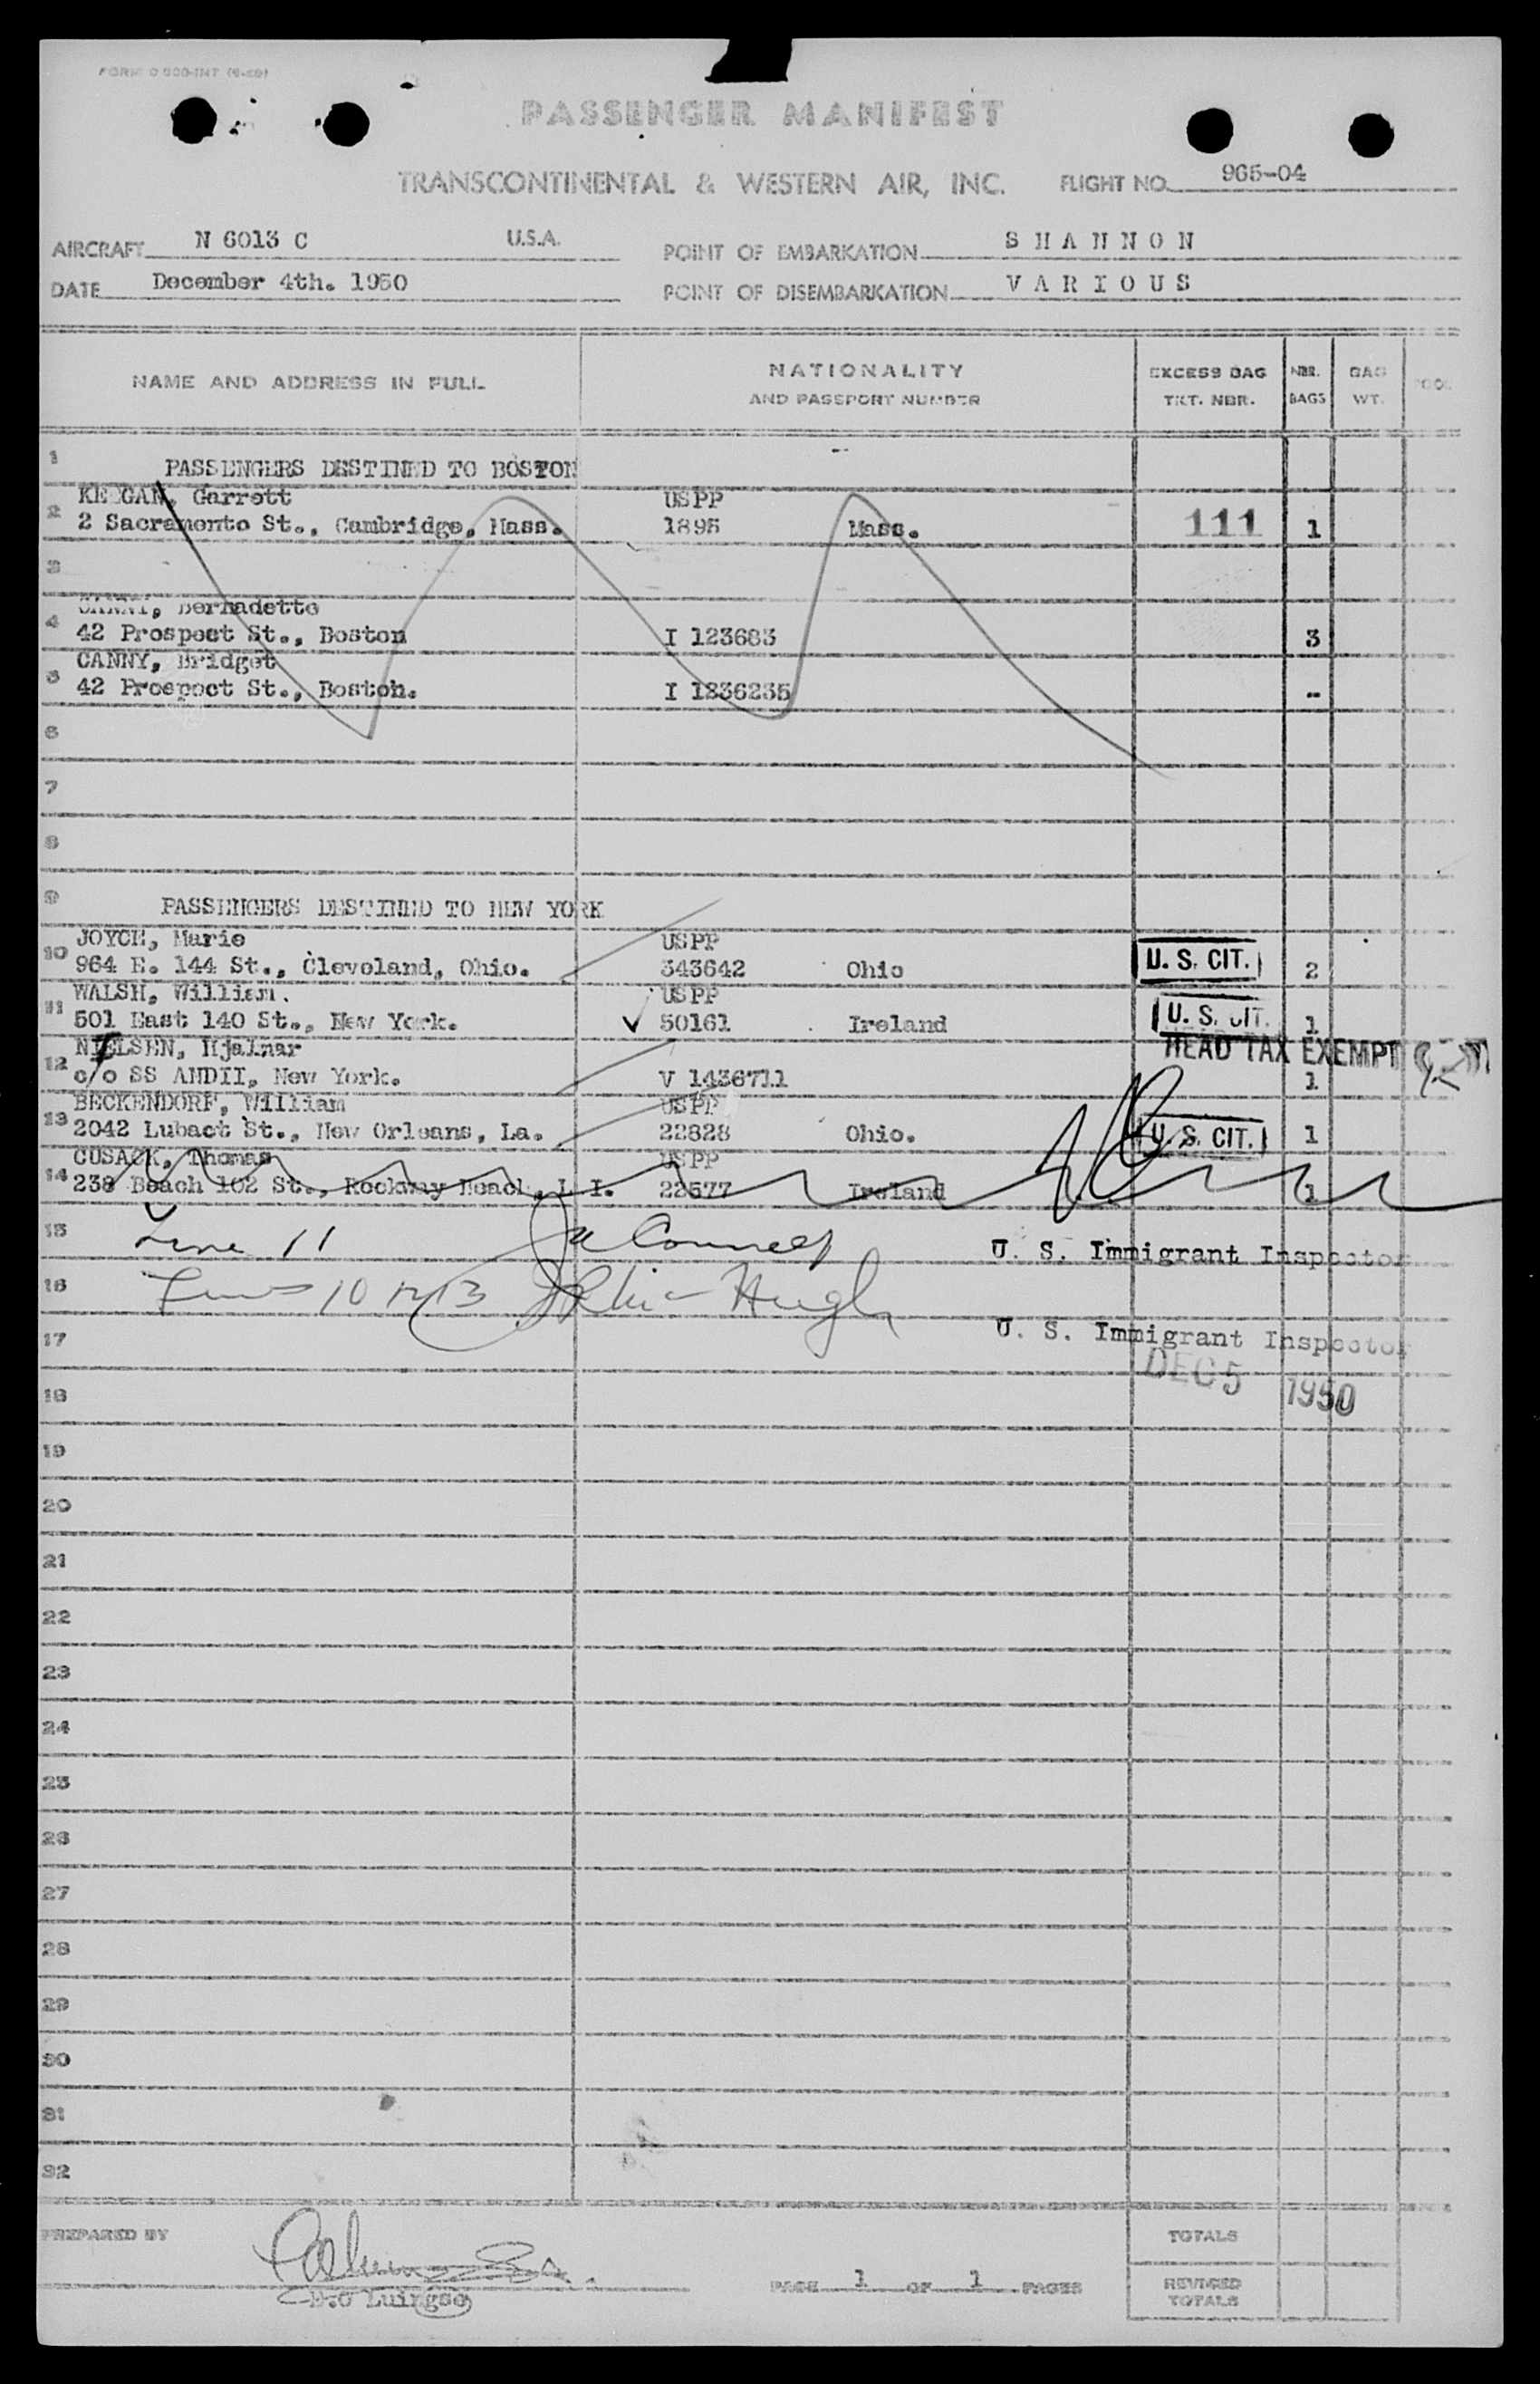 PASSENGER MANIFEST
TRANSCONTINENTAL & WESTERN AIR, INC. FLIGHT NO. 965-04
AIRCRAFT N 6013 C U.S.A. POINT OF EMBARKATION S H A N N O N
DATE December 4th. 1950 POINT OF DISEMBARKATION V A R I O U S
NAME AND ADDRESS IN FULL NATIONALITY AND PASSPORT NUMBER EXCESS BAG TKT. NBR. NBR. BAGS BAG WT.
1 PASSENGERS DESTINED TO BOSTON
KEEGAN, Garrett USPP
2 2 Sacramento St., Cambridge, Mass. 1895 Mass. 111 1
3
Bernadette
4 42 Prospect St., Boston I 123683 3
CANNY, Bridget
5 42 Prospect St., Boston. I 1236235 --
6
7
8
9 PASSENGERS DESTINED TO NEW YORK
JOYCE, Marie USPP
10 964 E. 144 St., Cleveland, Ohio. 343642 Ohio U. S. CIT. 2
WALSH, William. USPP
11 501 East 140 St., New York. 50161 Ireland U. S. CIT. 1
NIELSEN, Hjalmar HEAD TAX EXEMPT
12 c/o SS ANDII, New York. V 1436711 1
BECKENDORF, William USPP
13 2042 Lubact St., New Orleans, La. 22828 Ohio. U. S. CIT. 1
CUSACK, Thomas USPP
14 238 Beach 102 St., Rockway Beach, L I. 22577 Ireland 1
15 Line 11 U. S. Immigrant Inspector
16 10 12 13
17 U. S. Immigrant Inspector
DEC 5 1950
18
19
20
21
22
23
24
25
26
27
28
29
30
31
32
PREPARED BY TOTALS
PAGE 1 OF 1 PAGES REVISED TOTALS